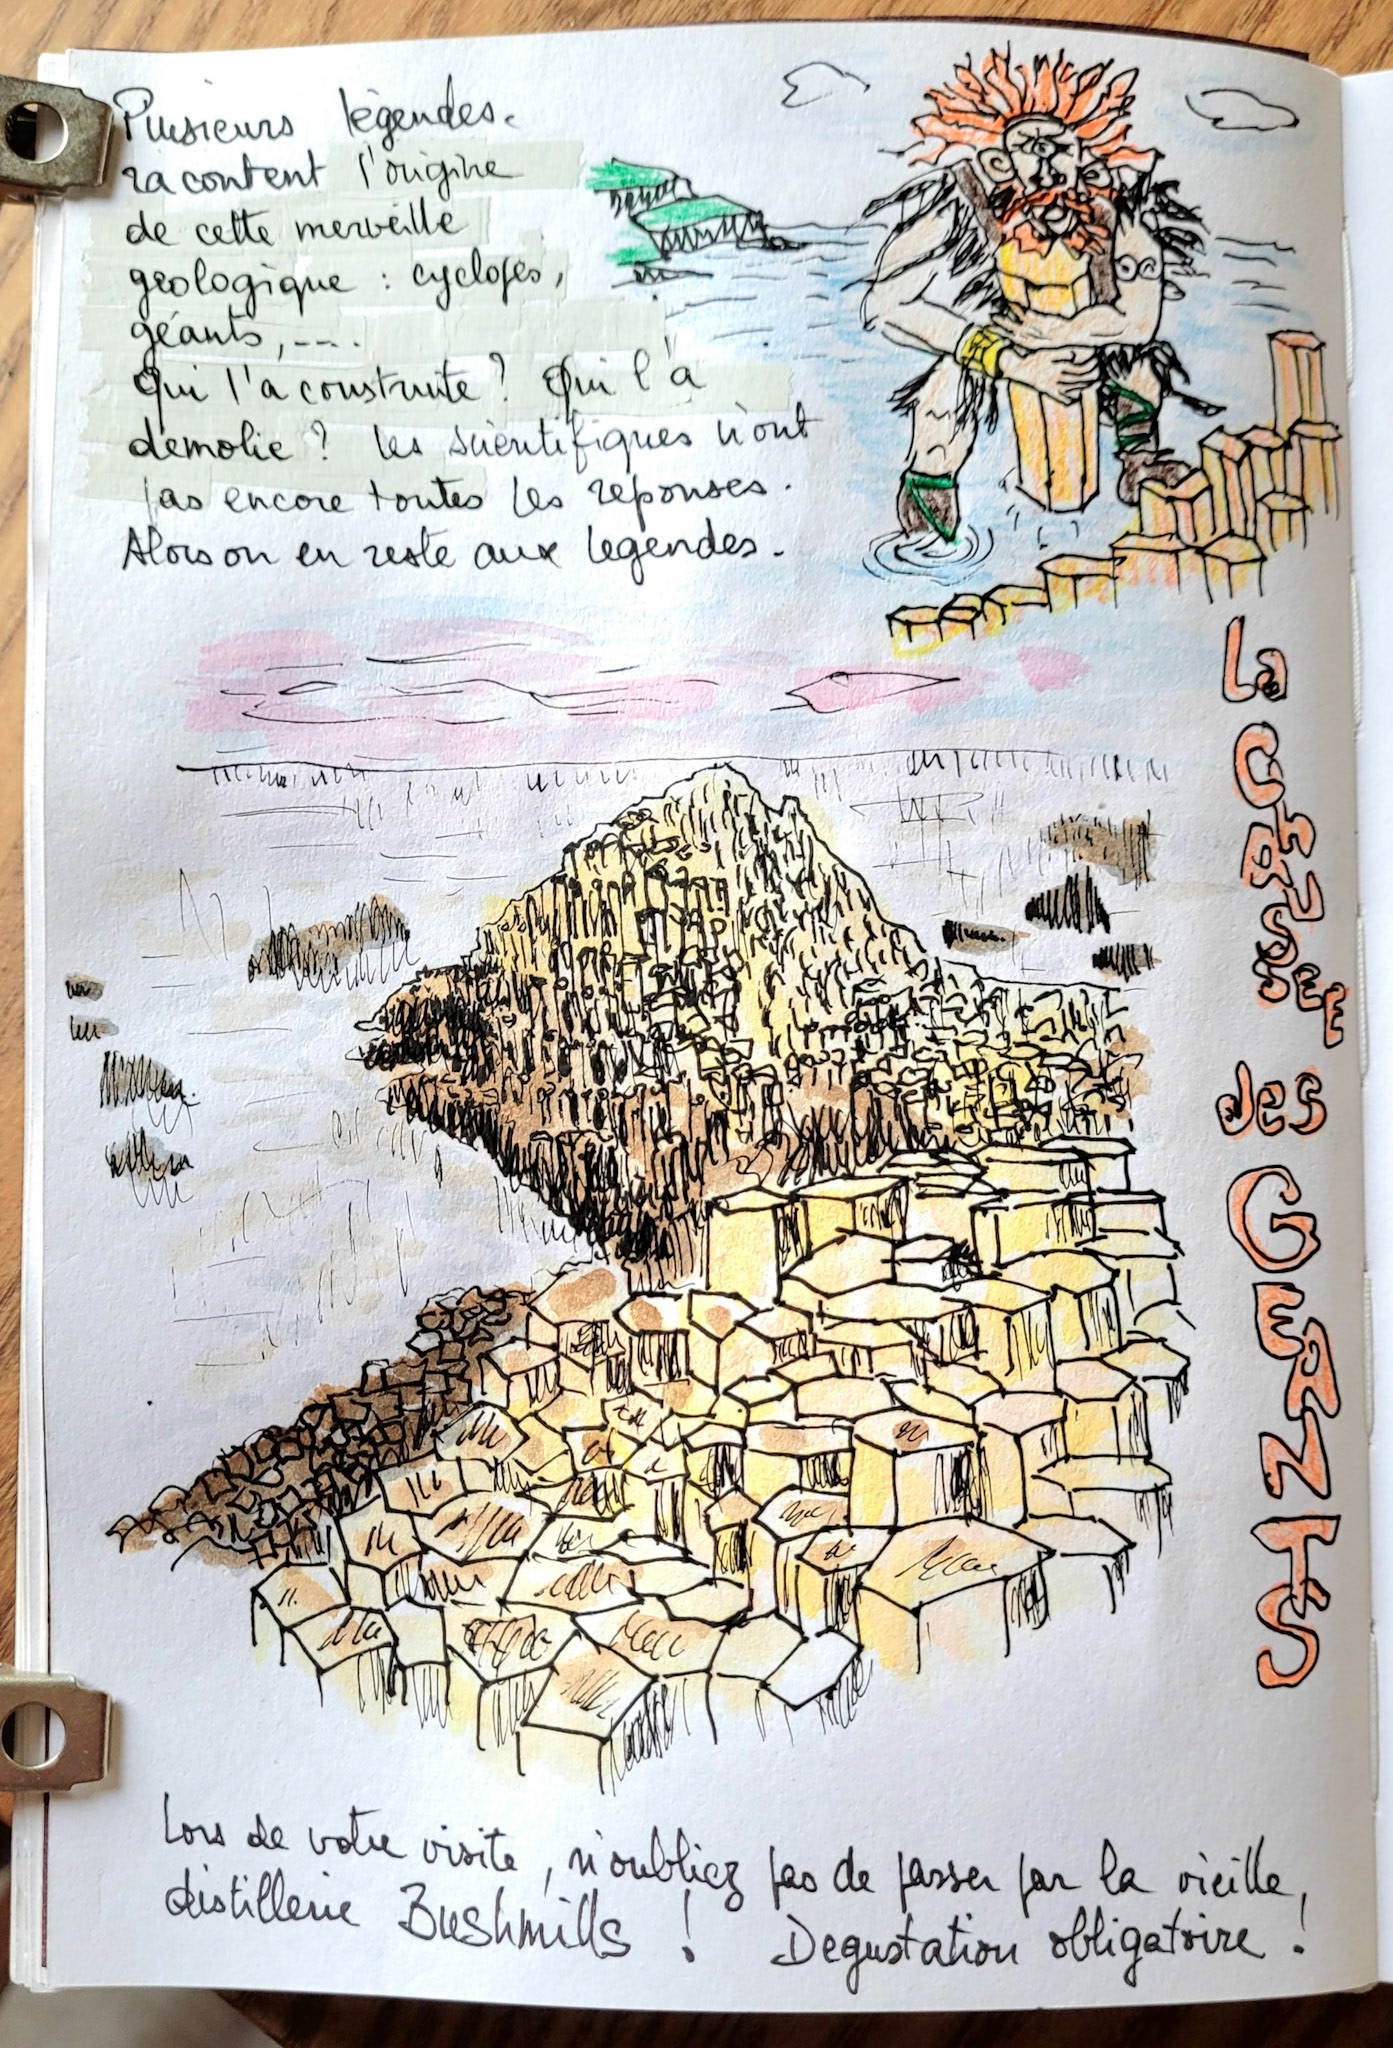 Plusieurs légendes.
racontent l'origine
de cette merveille
géologique : cyclopes,
géants, ....
Qui l'a construite ? Qui l'a
démolie ? Les scientifiques n'ont
pas encore toutes les réponses.
Alors on en reste aux légendes.
La CHAUSSÉE des GEANTS
Lors de votre visite, n'oubliez pas de passer par la vieille,
distillerie Bushmills ! Dégustation obligatoire !